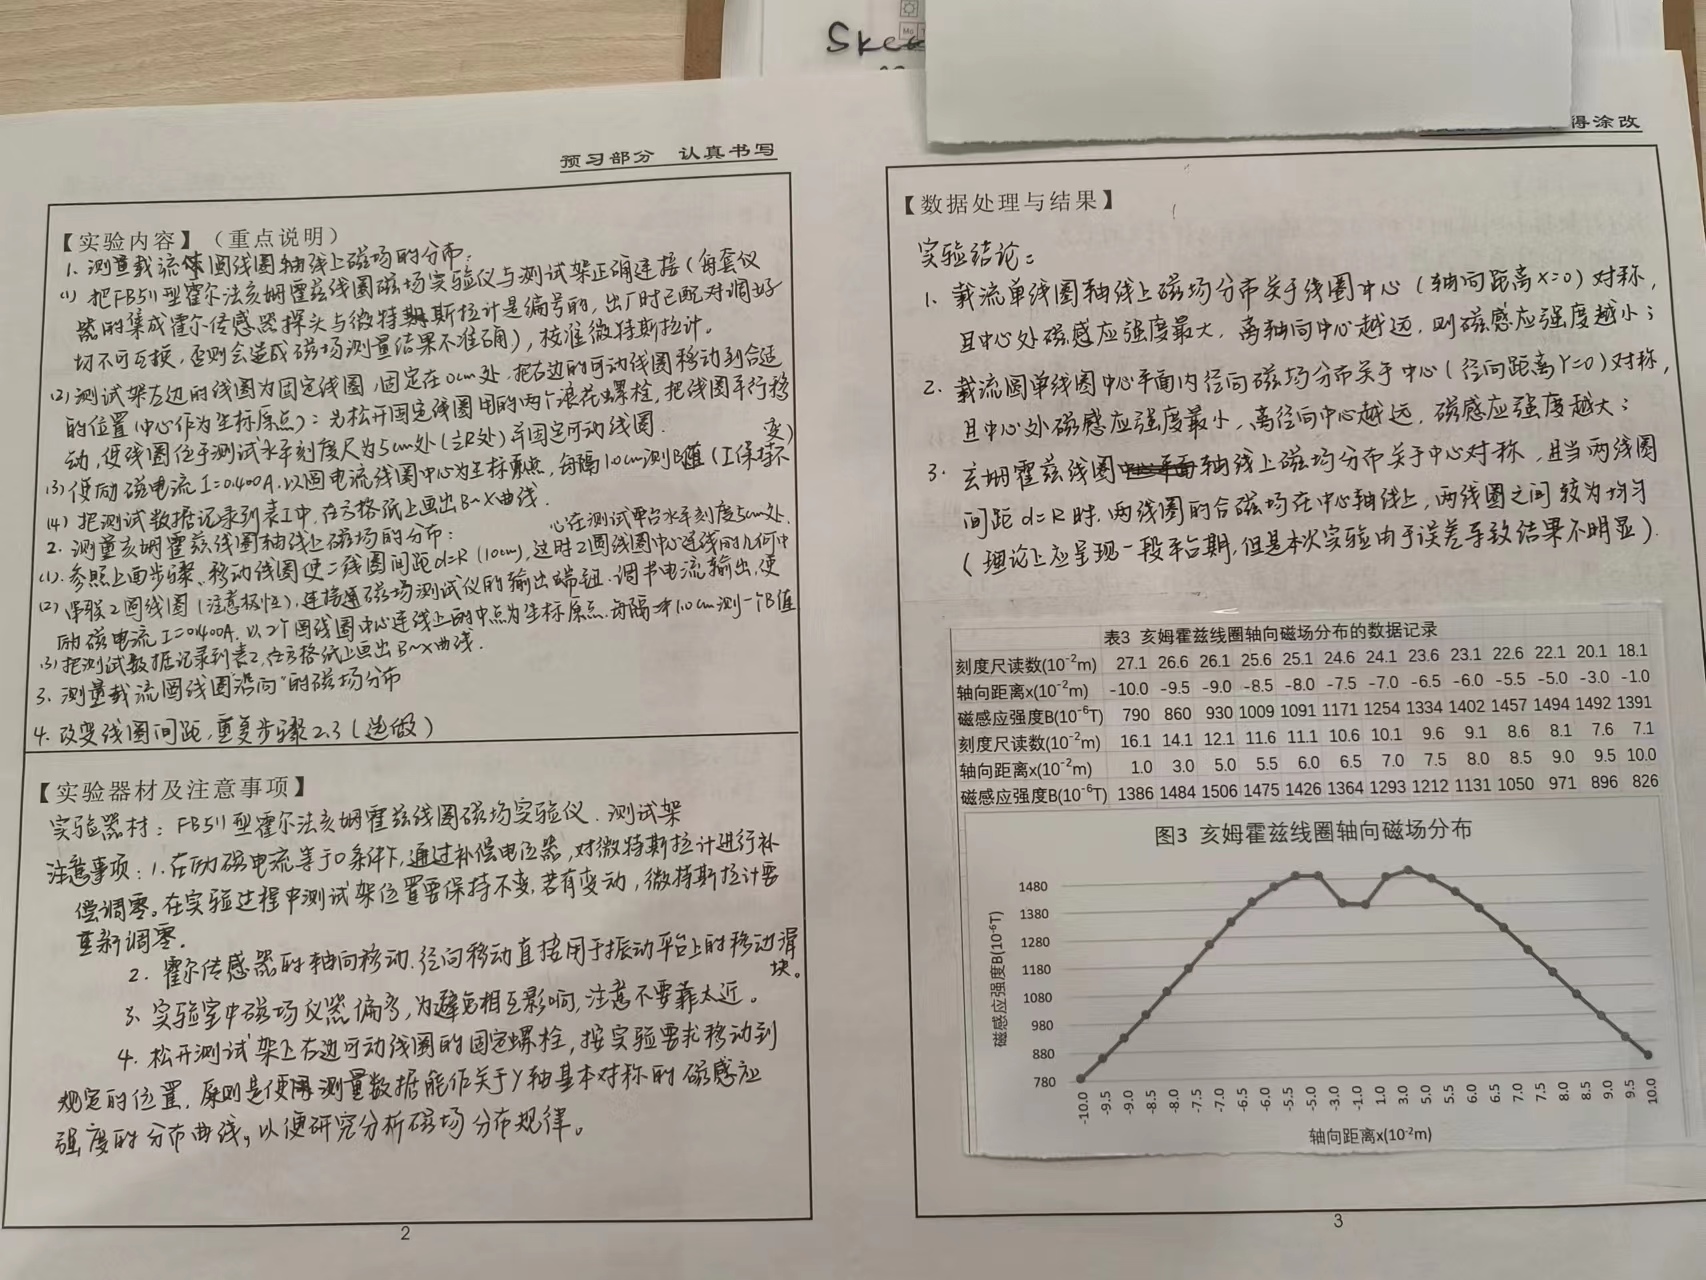 Skec
得涂改
预习部分 认真书写
【实验内容】（重点说明）
1. 测量载流圆线圈轴线上磁场的分布：
(1) 把FB511型霍尔法亥姆霍兹线圈磁场实验仪与测试架正确连接（每套仪
器的集成霍尔传感器探头与微特斯拉计是编号的，出厂时已配对调好
切不可互换，否则会造成磁场测量结果不准确），校准微特斯拉计。
(2) 测试架左边的线圈为固定线圈，固定在0cm处，把右边的可动线圈移动到合适
的位置（中心作为坐标原点）：先松开固定线圈用的两个滚花螺栓，把线圈平行移
动，使线圈位于测试水平刻度尺为5cm处（½R处）并固定可动线圈．
(3) 使励磁电流I=0.400A．以圆电流线圈中心为坐标原点，每隔1.0cm测B值（I保持不
变）
(4) 把测试数据记录到表1中，在方格纸上画出B-X曲线．
2. 测量亥姆霍兹线圈轴线上磁场的分布：
(1). 参照上面步骤、移动线圈使二线圈间距d=R（10cm），这时2圆线圈中心连线的几何中
心在测试平台水平刻度5cm处．
(2) 串联2圆线圈（注意极性），连接磁场测试仪的输出端钮．调节电流输出，使
励磁电流I=0.400A．以2个圆线圈中心连线上的中点为坐标原点．每隔1.0cm测一个B值
(3) 把测试数据记录到表2，在方格纸上画出B~x曲线．
3. 测量载流圆线圈"沿向"的磁场分布
4. 改变线圈间距，重复步骤2.3（选做）
【实验器材及注意事项】
实验器材：FB511型霍尔法亥姆霍兹线圈磁场实验仪．测试架
注意事项：1. 在励磁电流等于0条件下，通过补偿电位器，对微特斯拉计进行补
偿调零。在实验过程中测试架位置要保持不变，若有变动，微特斯拉计要
重新调零．
2. 霍尔传感器的轴向移动．径向移动直接用于振动平台上的移动滑
块。
3. 实验室中磁场仪器偏多，为避免相互影响，注意不要靠太近。
4. 松开测试架上右边可动线圈的固定螺栓，按实验要求移动到
规定的位置，原则是使测量数据能作关于Y轴基本对称的磁感应
强度的分布曲线，以便研究分析磁场分布规律。
2
【数据处理与结果】
实验结论：
1. 载流单线圈轴线上磁场分布关于线圈中心（轴向距离X=0）对称，
且中心处磁感应强度最大，离轴向中心越远，则磁感应强度越小；
2. 载流圆单线圈中心平面内径向磁场分布关于中心（径向距离Y=0）对称，
且中心处磁感应强度最小，离径向中心越远，磁感应强度越大；
3. 亥姆霍兹线圈轴线上磁场分布关于中心对称，且当两线圈
间距d=R时，两线圈的合磁场在中心轴线上，两线圈之间较为均匀
（理论上应呈现一段平台期，但是本次实验由于误差导致结果不明显）．
表3 亥姆霍兹线圈轴向磁场分布的数据记录
刻度尺读数(10⁻²m) 27.1 26.6 26.1 25.6 25.1 24.6 24.1 23.6 23.1 22.6 22.1 20.1 18.1
轴向距离x(10⁻²m) -10.0 -9.5 -9.0 -8.5 -8.0 -7.5 -7.0 -6.5 -6.0 -5.5 -5.0 -3.0 -1.0
磁感应强度B(10⁻⁶T) 790 860 930 1009 1091 1171 1254 1334 1402 1457 1494 1492 1391
刻度尺读数(10⁻²m) 16.1 14.1 12.1 11.6 11.1 10.6 10.1 9.6 9.1 8.6 8.1 7.6 7.1
轴向距离x(10⁻²m) 1.0 3.0 5.0 5.5 6.0 6.5 7.0 7.5 8.0 8.5 9.0 9.5 10.0
磁感应强度B(10⁻⁶T) 1386 1484 1506 1475 1426 1364 1293 1212 1131 1050 971 896 826
图3 亥姆霍兹线圈轴向磁场分布
磁感应强度B(10⁻⁶T)
1480
1380
1280
1180
1080
980
880
780
-10.0 -9.5 -9.0 -8.5 -8.0 -7.5 -7.0 -6.5 -6.0 -5.5 -5.0 -3.0 -1.0 1.0 3.0 5.0 5.5 6.0 6.5 7.0 7.5 8.0 8.5 9.0 9.5 10.0
轴向距离x(10⁻²m)
3